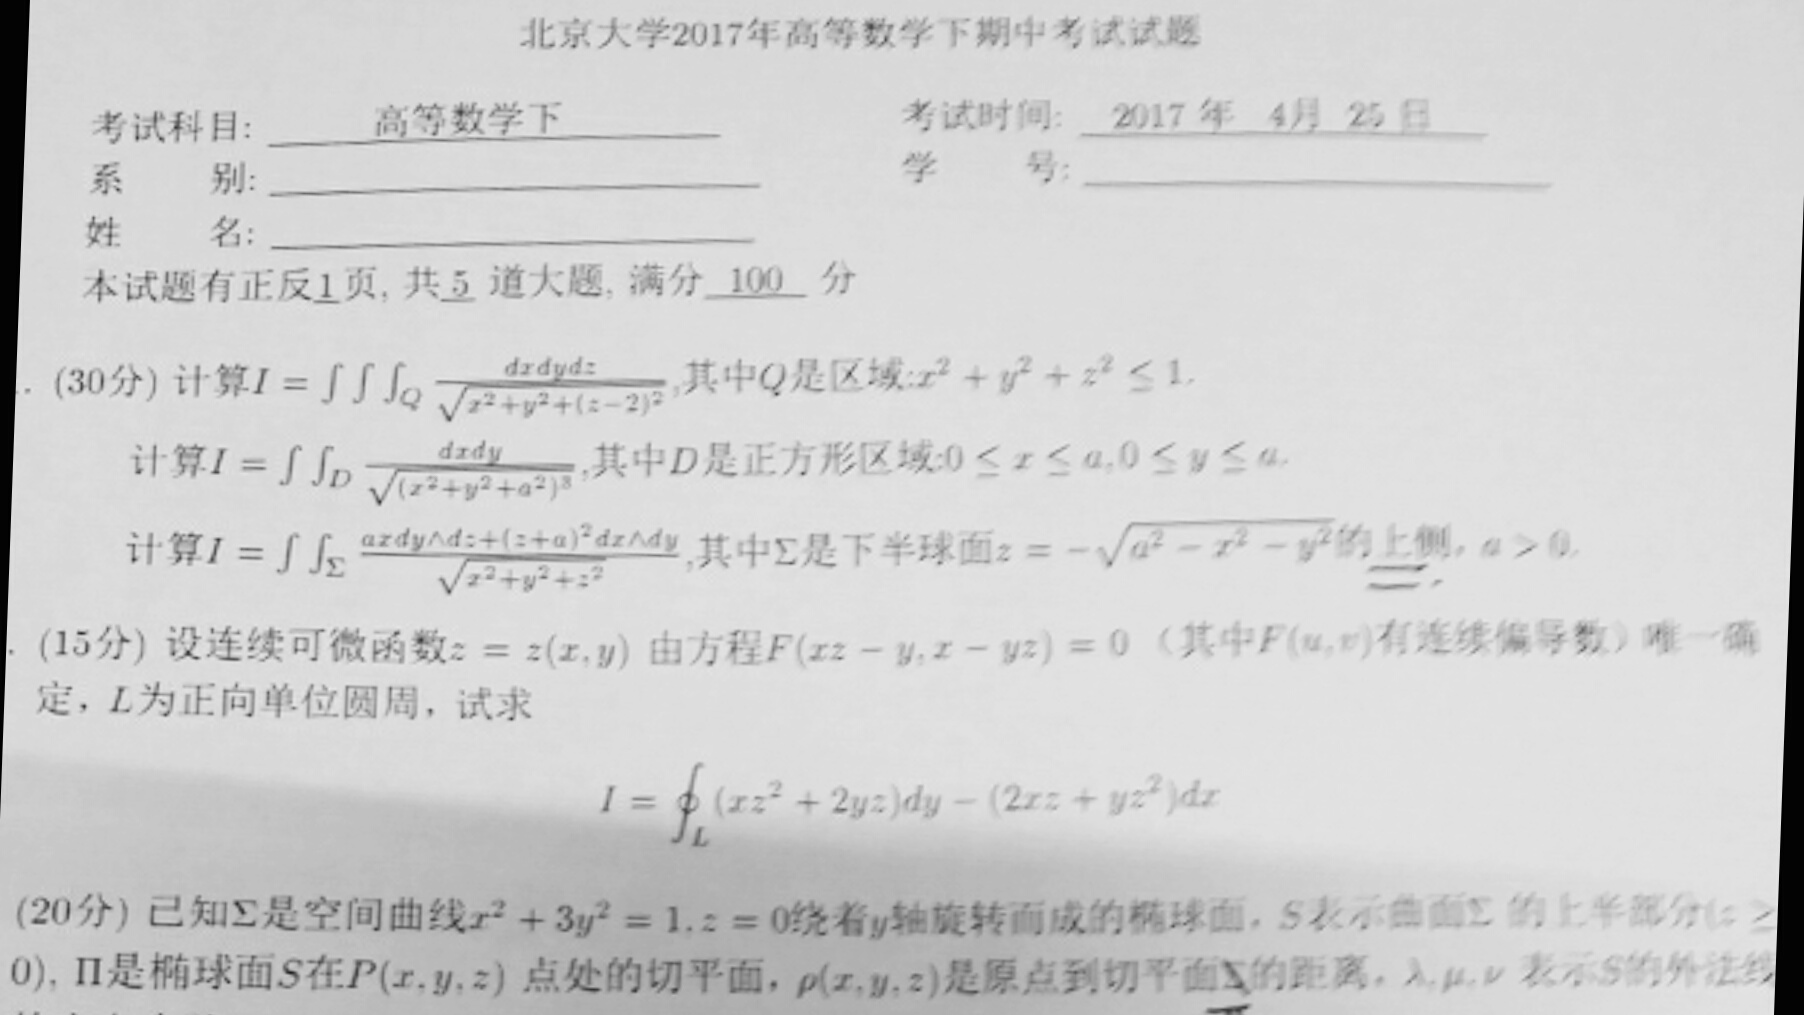 北京大学2017年高等数学下期中考试试题
考试科目: 高等数学下 考试时间: 2017 年 4月 25 日
系 别: 学 号:
姓 名:
本试题有正反1页, 共 5 道大题, 满分 100 分
. (30分) 计算I = ∫∫∫_Q dxdydz/√(x²+y²+(z−2)²),其中Q是区域:x² + y² + z² ≤ 1.
计算I = ∫∫_D dxdy/√((x²+y²+a²)³),其中D是正方形区域:0 ≤ x ≤ a,0 ≤ y ≤ a.
计算I = ∫∫_Σ (axdy∧dz+(z+a)²dx∧dy)/√(x²+y²+z²),其中Σ是下半球面z = −√(a² − x² − y²)的上侧, a > 0.
. (15分) 设连续可微函数z = z(x, y) 由方程F(xz − y, x − yz) = 0 (其中F(u, v)有连续偏导数) 唯一确
定, L为正向单位圆周, 试求
I = ∮_L (xz² + 2yz)dy − (2xz + yz²)dx
(20分) 已知Σ是空间曲线x² + 3y² = 1, z = 0绕着y轴旋转而成的椭球面, S表示曲面Σ 的上半部分(z ≥
0), Π是椭球面S在P(x, y, z) 点处的切平面, ρ(x, y, z)是原点到切平面Σ的距离, λ, μ, ν 表示S的外法线